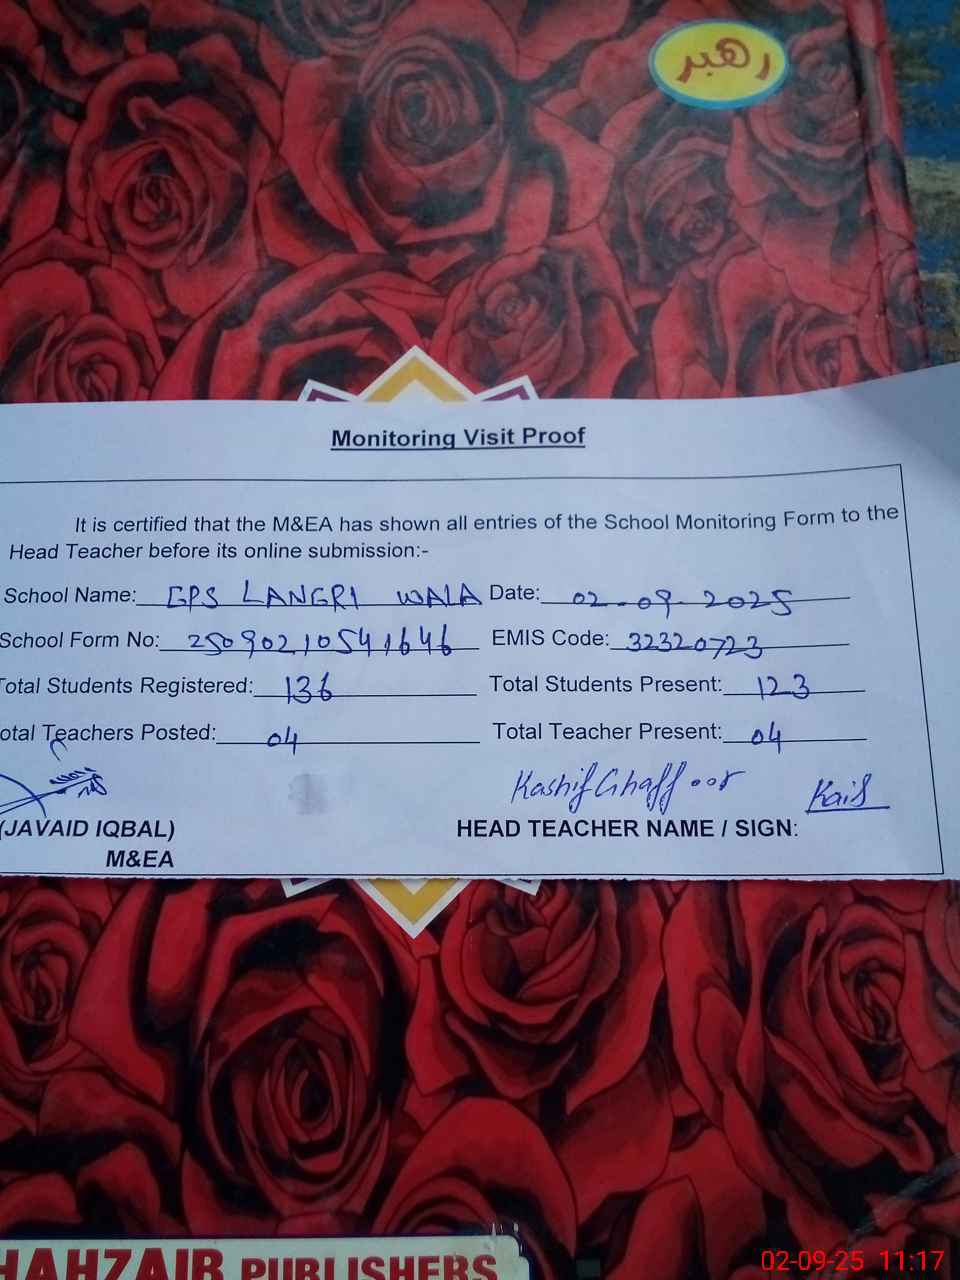 رهبر
Monitoring Visit Proof
It is certified that the M&EA has shown all entries of the School Monitoring Form to the
Head Teacher before its online submission:-
School Name: GPS LANGRI WALA Date: 02-09-2025
School Form No: 25090210541646 EMIS Code: 32320723
Total Students Registered: 136 Total Students Present: 123
otal Teachers Posted: 04 Total Teacher Present: 04
Kashif Ghaffoor
(JAVAID IQBAL) HEAD TEACHER NAME / SIGN:
M&EA
HAHZAIB PUBLISHERS
02-09-25 11:17